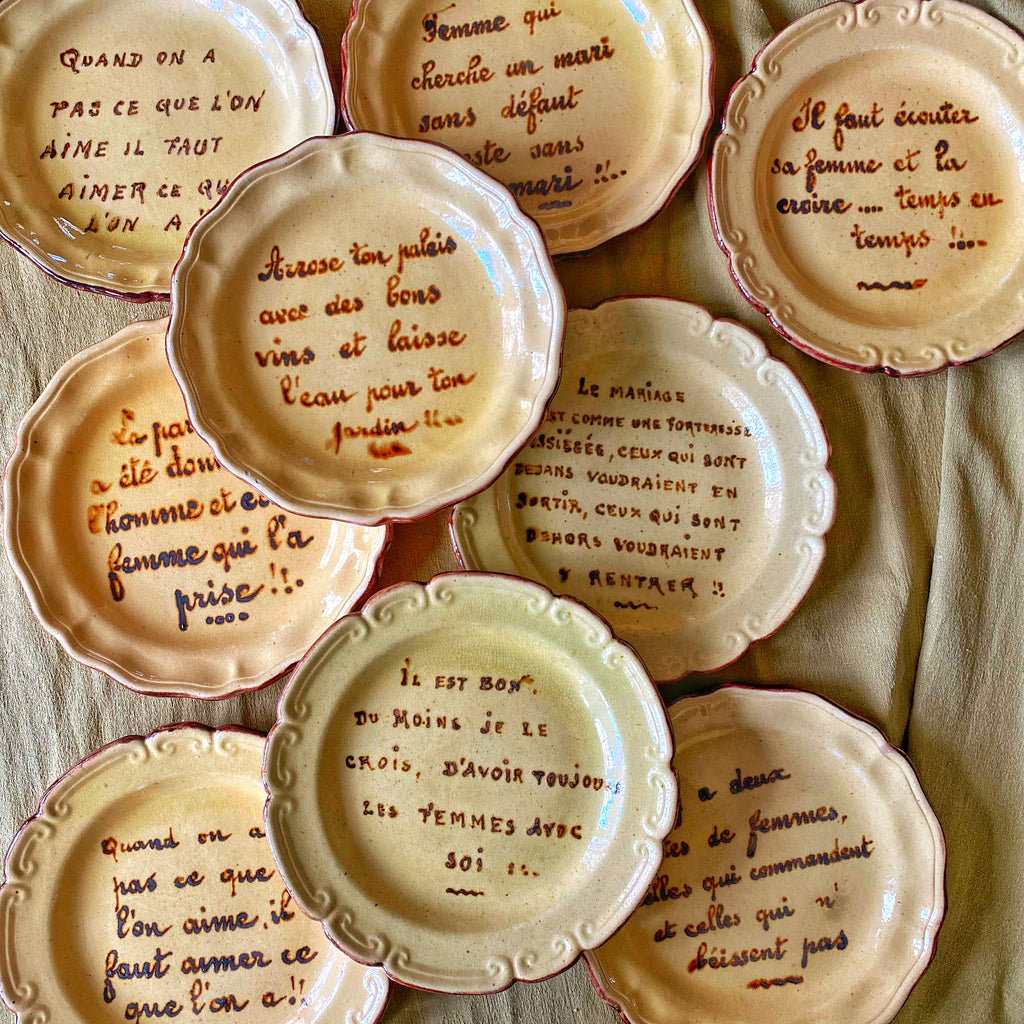 QUAND ON A
PAS CE QUE L'ON
AIME IL FAUT
AIMER CE
L'ON A
Femme qui
cherche un mari
sans défaut
sans
mari !...
Il faut écouter
sa femme et la
croire .... temps en
temps !...
Arrose ton palais
avec des bons
vins et laisse
l'eau pour ton
jardin !!...
La
a été
l'homme et
femme qui l'a
prise !!.
LE MARIAGE
EST COMME UNE FORTERESSE
ASSIÉGÉE, CEUX QUI SONT
DEDANS VOUDRAIENT EN
SORTIR, CEUX QUI SONT
DEHORS VOUDRAIENT
Y RENTRER !!
IL EST BON.
DU MOINS JE LE
CROIS, D'AVOIR TOUJOURS
LES FEMMES AVEC
SOI !..
Quand on a
pas ce que
l'on aime, il
faut aimer ce
que l'on a !!
a deux
de femmes,
celles qui commandent
et celles qui n'
béissent pas